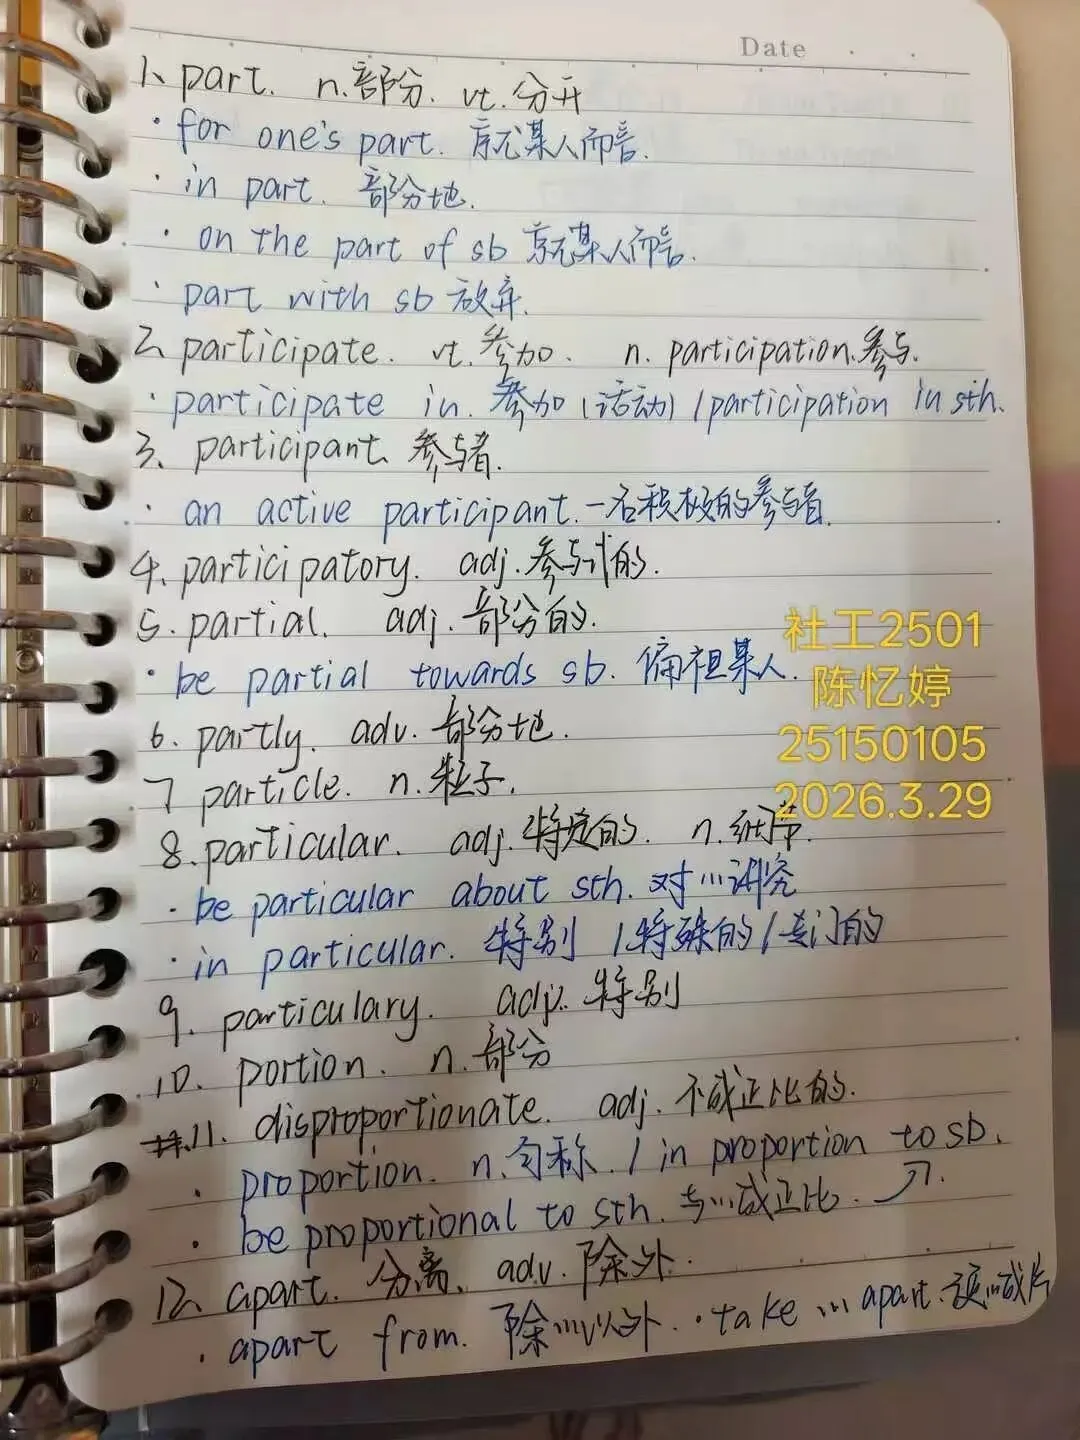 Date
1、part. n.部分. vt.分开
·for one's part. 就某人而言.
·in part. 部分地.
·on the part of sb 就某人而言.
·part with sb 放弃.
2、participate. vt.参加. n. participation.参与.
·participate in. 参加(活动) / participation in sth.
3、participant、参与者.
·an active participant.一名积极的参与者.
4、participatory. adj.参与式的.
5.partial. adj.部分的.
·be partial towards sb. 偏袒某人.
6.partly. adv.部分地.
7 particle. n.粒子.
8.particular. adj.特定的. n.细节.
·be particular about sth. 对…讲究
·in particular. 特别 / 特殊的 / 专门的
9.particulary. adj. 特别
10. portion. n.部分
11. disproportionate. adj. 不成正比的.
·proportion. n.匀称. / in proportion to sb.
·be proportional to sth. 与…成正比.
12、apart. 分离、adv.除外.
·apart from. 除…以外. ·take … apart.逐…成片
社工2501
陈忆婷
25150105
2026.3.29